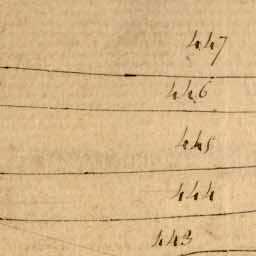 447
446
445
444
443